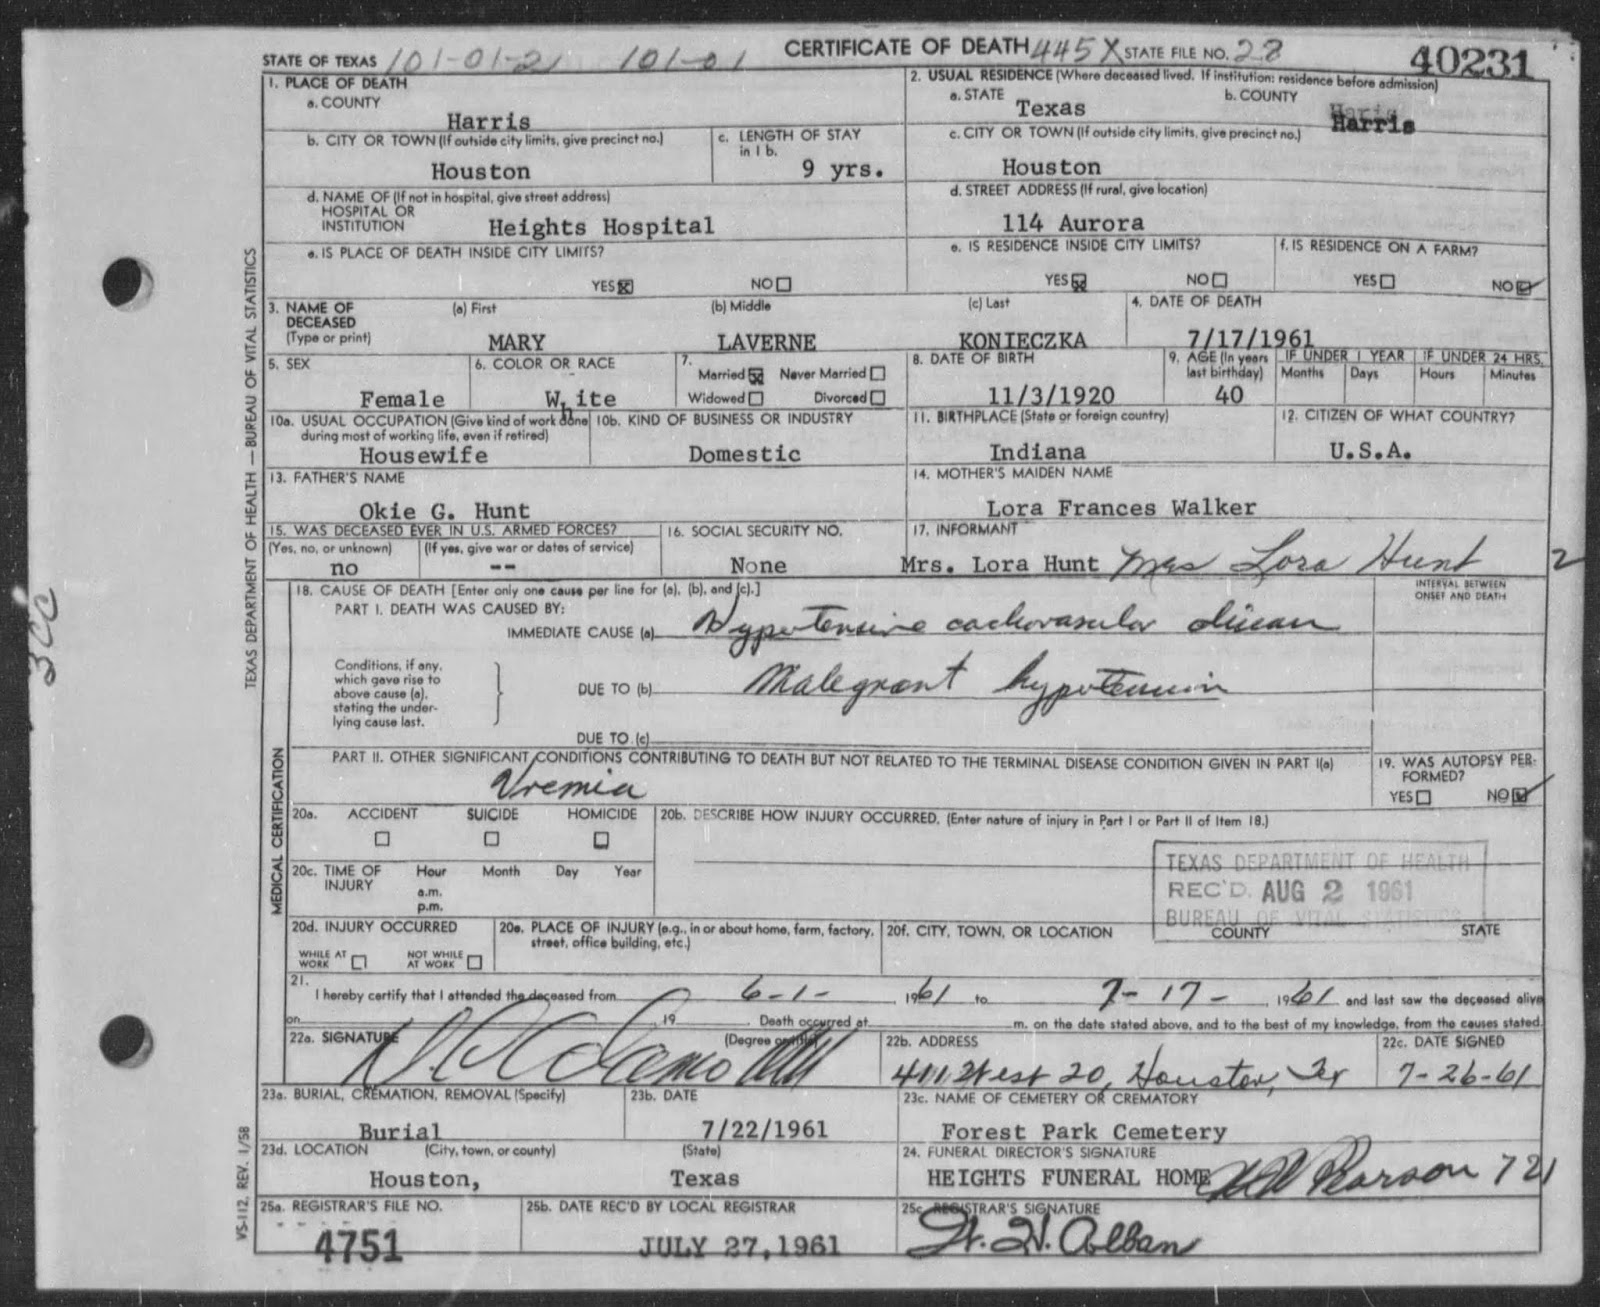 STATE OF TEXAS 101-01-21 101-01 CERTIFICATE OF DEATH 445X STATE FILE NO. 28 40231
1. PLACE OF DEATH
a. COUNTY
Harris
2. USUAL RESIDENCE (Where deceased lived. If institution: residence before admission)
a. STATE
Texas
b. COUNTY
Harris
b. CITY OR TOWN (If outside city limits, give precinct no.)
Houston
c. LENGTH OF STAY
in 1 b.
9 yrs.
c. CITY OR TOWN (If outside city limits, give precinct no.)
Houston
d. NAME OF (If not in hospital, give street address)
HOSPITAL OR
INSTITUTION
Heights Hospital
d. STREET ADDRESS (If rural, give location)
114 Aurora
e. IS PLACE OF DEATH INSIDE CITY LIMITS?
YES NO
e. IS RESIDENCE INSIDE CITY LIMITS?
YES NO
f. IS RESIDENCE ON A FARM?
YES NO
3. NAME OF
DECEASED
(Type or print)
(a) First
MARY
(b) Middle
LAVERNE
(c) Last
KONIECZKA
4. DATE OF DEATH
7/17/1961
5. SEX
Female
6. COLOR OR RACE
White
7.
Married Never Married
Widowed Divorced
8. DATE OF BIRTH
11/3/1920
9. AGE (In years
last birthday)
40
IF UNDER 1 YEAR
Months Days
IF UNDER 24 HRS.
Hours Minutes
10a. USUAL OCCUPATION (Give kind of work done
during most of working life, even if retired)
Housewife
10b. KIND OF BUSINESS OR INDUSTRY
Domestic
11. BIRTHPLACE (State or foreign country)
Indiana
12. CITIZEN OF WHAT COUNTRY?
U.S.A.
13. FATHER'S NAME
Okie G. Hunt
14. MOTHER'S MAIDEN NAME
Lora Frances Walker
15. WAS DECEASED EVER IN U.S. ARMED FORCES?
(Yes, no, or unknown)
no
(If yes, give war or dates of service)
--
16. SOCIAL SECURITY NO.
None
17. INFORMANT
Mrs. Lora Hunt Mrs Lora Hunt 2
18. CAUSE OF DEATH [Enter only one cause per line for (a), (b), and (c).]
INTERVAL BETWEEN
ONSET AND DEATH
PART I. DEATH WAS CAUSED BY:
IMMEDIATE CAUSE (a) Hypertensive cardiovascular disease
Conditions, if any,
which gave rise to
above cause (a),
stating the under-
lying cause last.
DUE TO (b) Malignant hypertension
DUE TO (c)
PART II. OTHER SIGNIFICANT CONDITIONS CONTRIBUTING TO DEATH BUT NOT RELATED TO THE TERMINAL DISEASE CONDITION GIVEN IN PART I(a)
Uremia
19. WAS AUTOPSY PER-
FORMED?
YES NO
20a. ACCIDENT SUICIDE HOMICIDE
20b. DESCRIBE HOW INJURY OCCURRED. (Enter nature of injury in Part I or Part II of Item 18.)
20c. TIME OF
INJURY
Hour Month Day Year
a.m.
p.m.
TEXAS DEPARTMENT OF HEALTH
REC'D AUG 2 1961
BUREAU OF VITAL STATISTICS
20d. INJURY OCCURRED
WHILE AT
WORK
NOT WHILE
AT WORK
20e. PLACE OF INJURY (e.g., in or about home, farm, factory,
street, office building, etc.)
20f. CITY, TOWN, OR LOCATION COUNTY STATE
21.
I hereby certify that I attended the deceased from 6-1- , 1961 to 7-17- , 1961 and last saw the deceased alive
on 19 . Death occurred at m. on the date stated above, and to the best of my knowledge, from the causes stated.
22a. SIGNATURE
(Degree or title)
22b. ADDRESS
411 West 20, Houston, Tex
22c. DATE SIGNED
7-26-61
23a. BURIAL, CREMATION, REMOVAL (Specify)
Burial
23b. DATE
7/22/1961
23c. NAME OF CEMETERY OR CREMATORY
Forest Park Cemetery
23d. LOCATION (City, town, or county) (State)
Houston, Texas
24. FUNERAL DIRECTOR'S SIGNATURE
HEIGHTS FUNERAL HOME Pearson 721
25a. REGISTRAR'S FILE NO.
4751
25b. DATE REC'D BY LOCAL REGISTRAR
JULY 27, 1961
25c. REGISTRAR'S SIGNATURE
H. Alban
TEXAS DEPARTMENT OF HEALTH — BUREAU OF VITAL STATISTICS
MEDICAL CERTIFICATION
VS-112, REV. 1/58
3CC